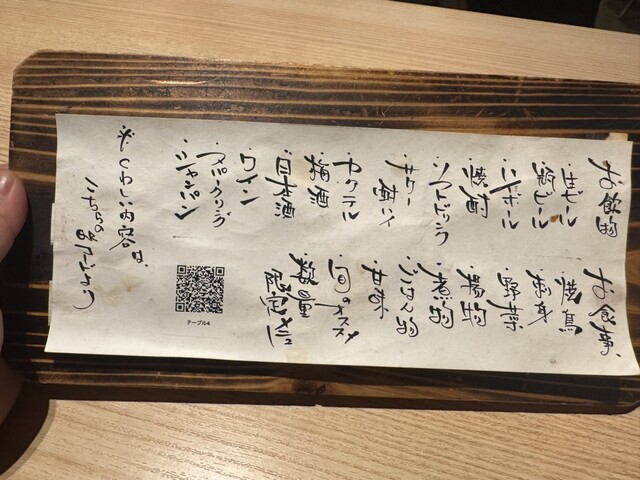 お飲物
・生ビール
・瓶ビール
・ハイボール
・焼酎
・ソフトドリンク
・サワー 酎ハイ
・カクテル
・梅酒
・日本酒
・ワイン
・スパークリング
・シャンパン
お食事
・焼鳥
・刺身
・野菜
・揚物
・煮物
・ごはん物
・甘味
・旬のオススメ
・数量限定メニュー
※くわしい内容は、
こちらの
テーブル4